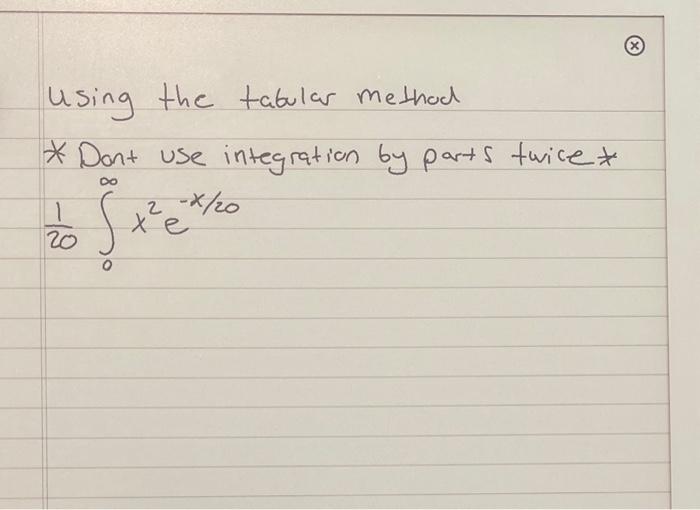 Using the tabular method
* Dont use integration by parts twice *
1/20 ∫₀^∞ x² e^-x/20